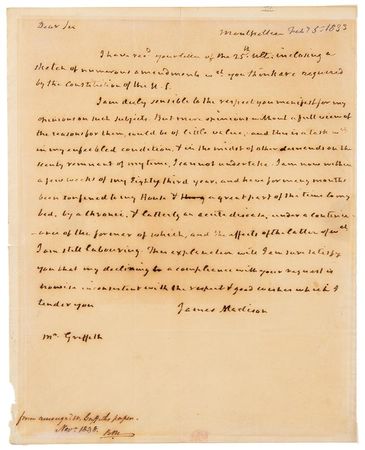 Dear Sir Montpellier Feb. 5 - 1833
I have recd. your letter of the 25th. Ult., inclosing a
sketch of numerous amendments wch you think are required
by the Constitution of the U. S.
I am duly sensible to the respect you manifest for my
opinions on such subjects. But mere opinions without a full view of
the reasons for them, could be of little value; and this is a task wch
in my enfeebled condition, & in the midst of other demands on the
scanty remnant of my time, I cannot undertake. I am now within
a few weeks of my Eighty third year, and have for many months
been confined to my House & a great part of the time to my
bed, by a chronic, & latterly an acute disease, under a continu-
ance of the former of which, and the effects of the latter of wch
I am still labouring. This explanation will I am sure satisfy
you that my declining a compliance with your request is
no wise inconsistent with the respect & good wishes which I
tender you
James Madison
Mr. Griffith
from amongst W. Griffith's papers.
Novr. 1838.